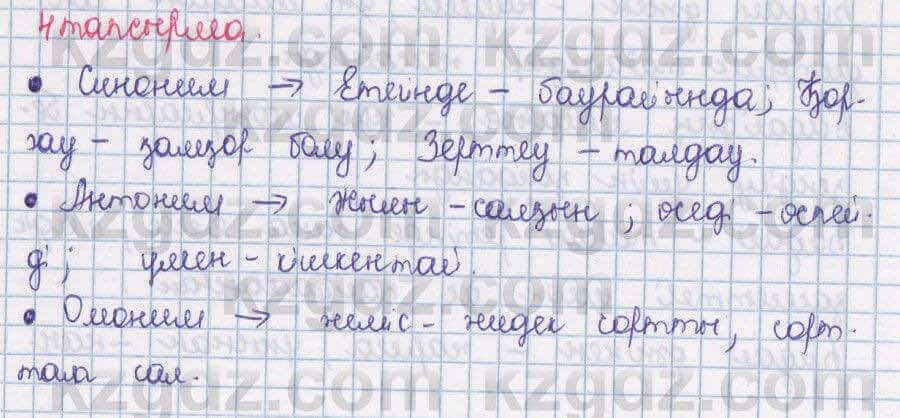 4 тапсырма.
• Синоним → Етегінде – баурайында; Қор-
ғау – қамқор болу; Зерттеу – талдау.
• Антоним → жылы – салқын; өседі – өспей-
ді; үлкен – кішкентай.
• Омоним → жеміс – жидек сортты, сорт-
тала сал.
kzgdz.com